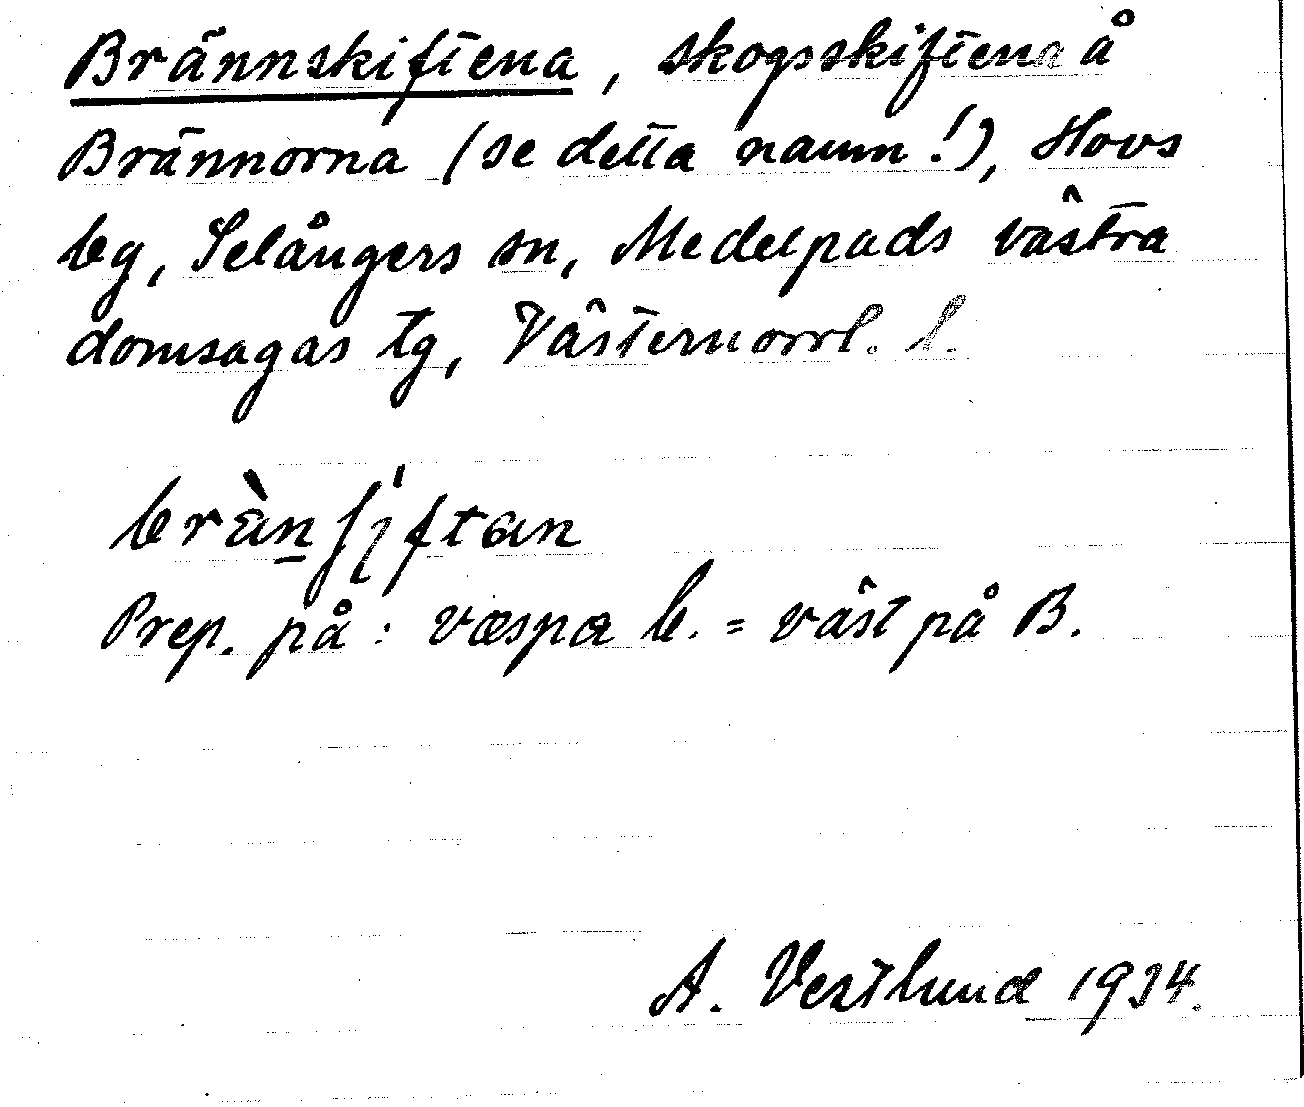 Brännskiftena, skogsskiftena å
Brännorna (se detta namn!), Hovs
by, Selångers sn, Medelpads västra
domsagas tg, Västernorrl. l.
Prep. på: væspa b. = väst på B.
A. Vestlund 1934.